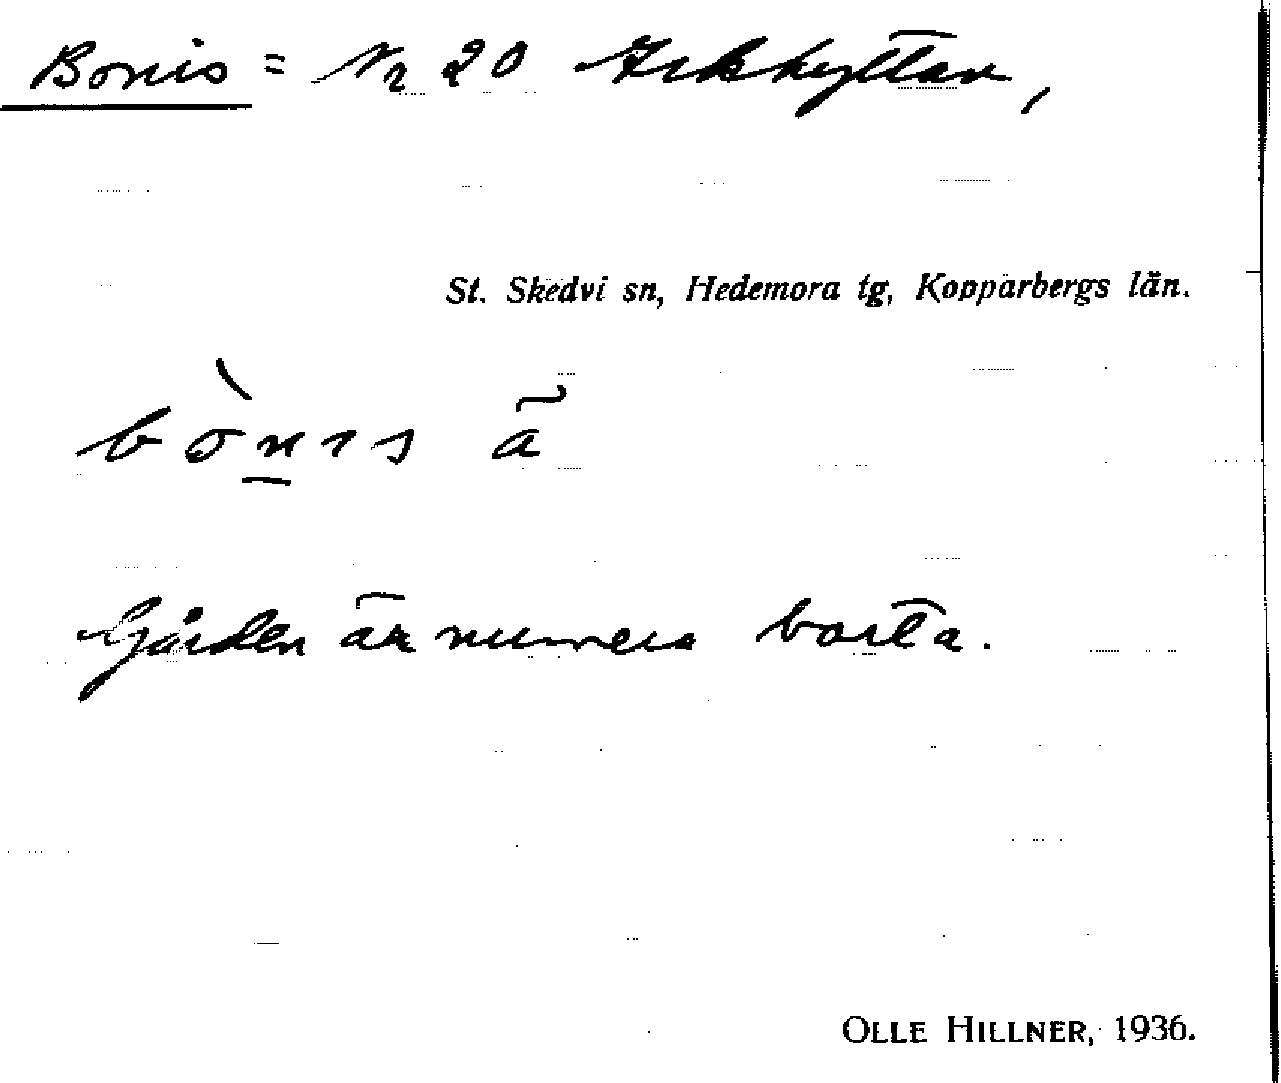 Bonis = Nr 20 Jrkhyttan,
St. Skedvi sn, Hedemora tg, Kopparbergs län.
bònıs ã
Gården är numera borta.
OLLE HILLNER, 1936.